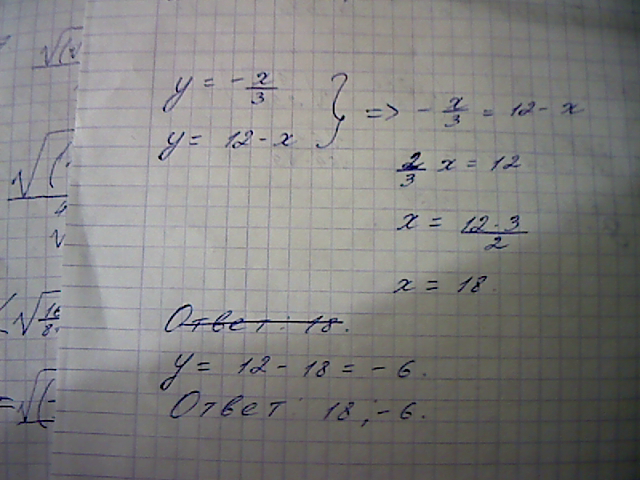 y = - x/3 } => - x/3 = 12 - x
y = 12 - x
2/3 x = 12
x = 12 · 3/2
x = 18.
Ответ: 18.
y = 12 - 18 = - 6.
Ответ: 18; - 6.